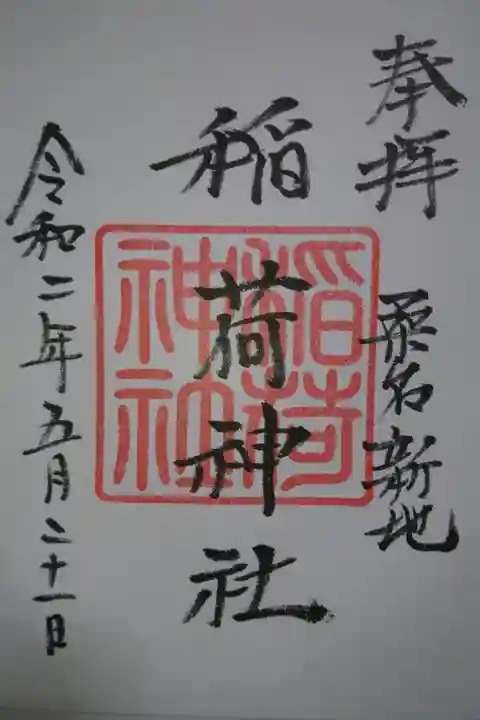 奉拝 桑名新地
稲荷神社
稲荷神社
令和二年五月二十一日